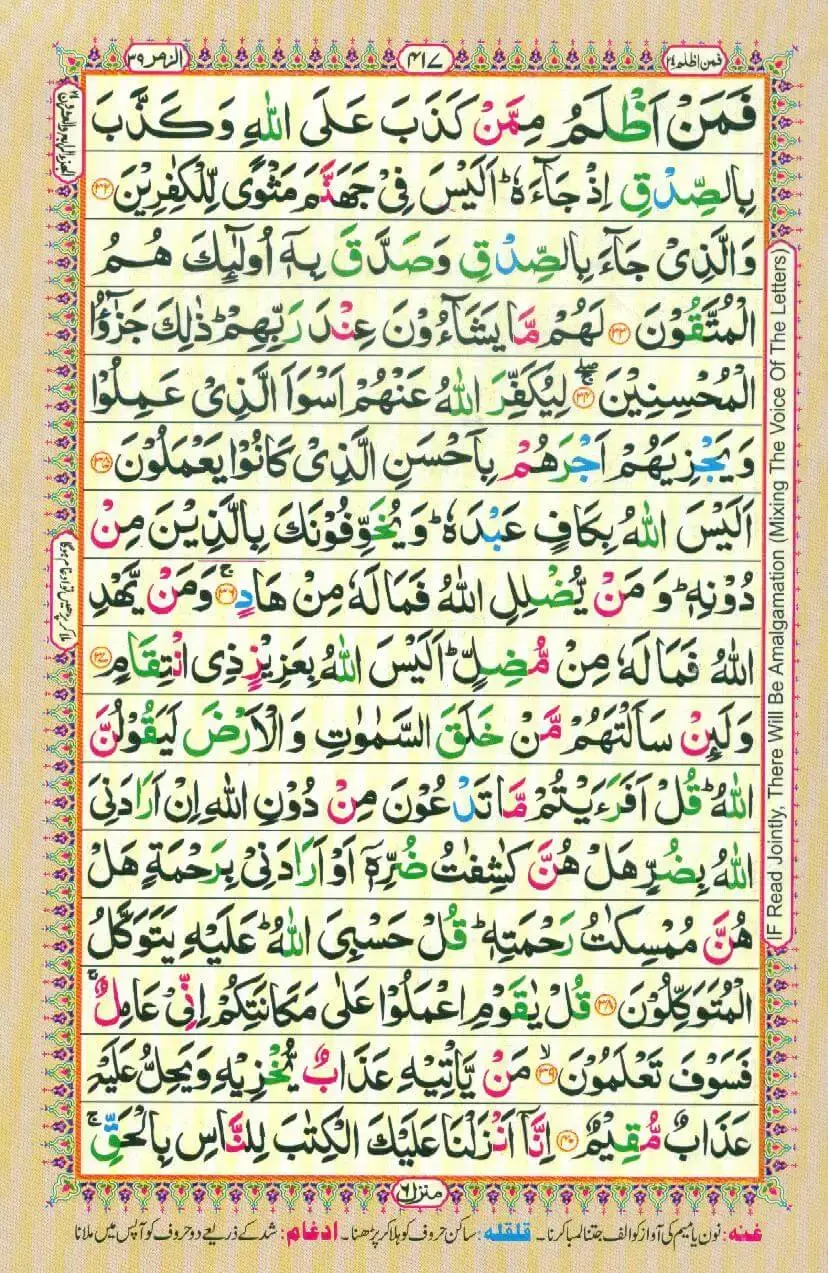 فمن اظلم ۲۴
۴۱۷
الزمر ۳۹
فَمَنْ اَظْلَمُ مِمَّنْ كَذَبَ عَلَى اللّٰهِ وَ كَذَّبَ
بِالصِّدْقِ اِذْ جَآءَهٗ ؕ اَلَیْسَ فِیْ جَهَنَّمَ مَثْوًى لِّلْكٰفِرِیْنَ ۝۳۲
وَ الَّذِیْ جَآءَ بِالصِّدْقِ وَ صَدَّقَ بِهٖۤ اُولٰٓىِٕكَ هُمُ
الْمُتَّقُوْنَ ۝۳۳ لَهُمْ مَّا یَشَآءُوْنَ عِنْدَ رَبِّهِمْ ؕ ذٰلِكَ جَزٰٓؤُا
الْمُحْسِنِیْنَ ۝۳۴ۚۖ لِیُكَفِّرَ اللّٰهُ عَنْهُمْ اَسْوَاَ الَّذِیْ عَمِلُوْا
وَ یَجْزِیَهُمْ اَجْرَهُمْ بِاَحْسَنِ الَّذِیْ كَانُوْا یَعْمَلُوْنَ ۝۳۵
اَلَیْسَ اللّٰهُ بِكَافٍ عَبْدَهٗ ؕ وَ یُخَوِّفُوْنَكَ بِالَّذِیْنَ مِنْ
دُوْنِهٖ ؕ وَ مَنْ یُّضْلِلِ اللّٰهُ فَمَا لَهٗ مِنْ هَادٍ ۝۳۶ۚ وَ مَنْ یَّهْدِ
اللّٰهُ فَمَا لَهٗ مِنْ مُّضِلٍّ ؕ اَلَیْسَ اللّٰهُ بِعَزِیْزٍ ذِی انْتِقَامٍ ۝۳۷
وَ لَىِٕنْ سَاَلْتَهُمْ مَّنْ خَلَقَ السَّمٰوٰتِ وَ الْاَرْضَ لَیَقُوْلُنَّ
اللّٰهُ ؕ قُلْ اَفَرَءَیْتُمْ مَّا تَدْعُوْنَ مِنْ دُوْنِ اللّٰهِ اِنْ اَرَادَنِیَ
اللّٰهُ بِضُرٍّ هَلْ هُنَّ كٰشِفٰتُ ضُرِّهٖۤ اَوْ اَرَادَنِیْ بِرَحْمَةٍ هَلْ
هُنَّ مُمْسِكٰتُ رَحْمَتِهٖ ؕ قُلْ حَسْبِیَ اللّٰهُ ؕ عَلَیْهِ یَتَوَكَّلُ
الْمُتَوَكِّلُوْنَ ۝۳۸ قُلْ یٰقَوْمِ اعْمَلُوْا عَلٰى مَكَانَتِكُمْ اِنِّیْ عَامِلٌ ۚ
فَسَوْفَ تَعْلَمُوْنَ ۝۳۹ۙ مَنْ یَّاْتِیْهِ عَذَابٌ یُّخْزِیْهِ وَ یَحِلُّ عَلَیْهِ
عَذَابٌ مُّقِیْمٌ ۝۴۰ اِنَّاۤ اَنْزَلْنَا عَلَیْكَ الْكِتٰبَ لِلنَّاسِ بِالْحَقِّ ۚ
IF Read Jointly, There Will Be Amalgamation (Mixing The Voice Of The Letters)
منزل ۶
غنہ: نون یا میم کی آواز کو الف جتنا لمبا کرنا۔ قلقلہ: ساکن حروف کو ہلا کر پڑھنا۔ ادغام: شد کے ذریعے دو حروف کو آپس میں ملانا